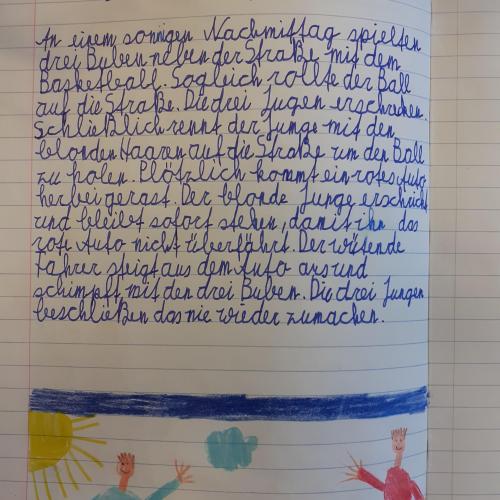 An einem sonnigen Nachmittag spielten
drei Buben neben der Straße mit dem
Basketball. Sogleich rollte der Ball
auf die Straße. Die drei Jugen erschrecken.
Schließlich rennt der Junge mit den
blonden Haaren auf die Straße um den Ball
zu holen. Plötzlich kommt ein rotes Auto
herbei gerast. Der blonde Junge erschrickt
und bleibt sofort stehen, damit ihn das
rote Auto nicht überfährt. Der wütende
Fahrer steigt aus dem Auto aus und
schimpft mit den drei Buben. Die drei Jungen
beschließen das nie wieder zumachen.